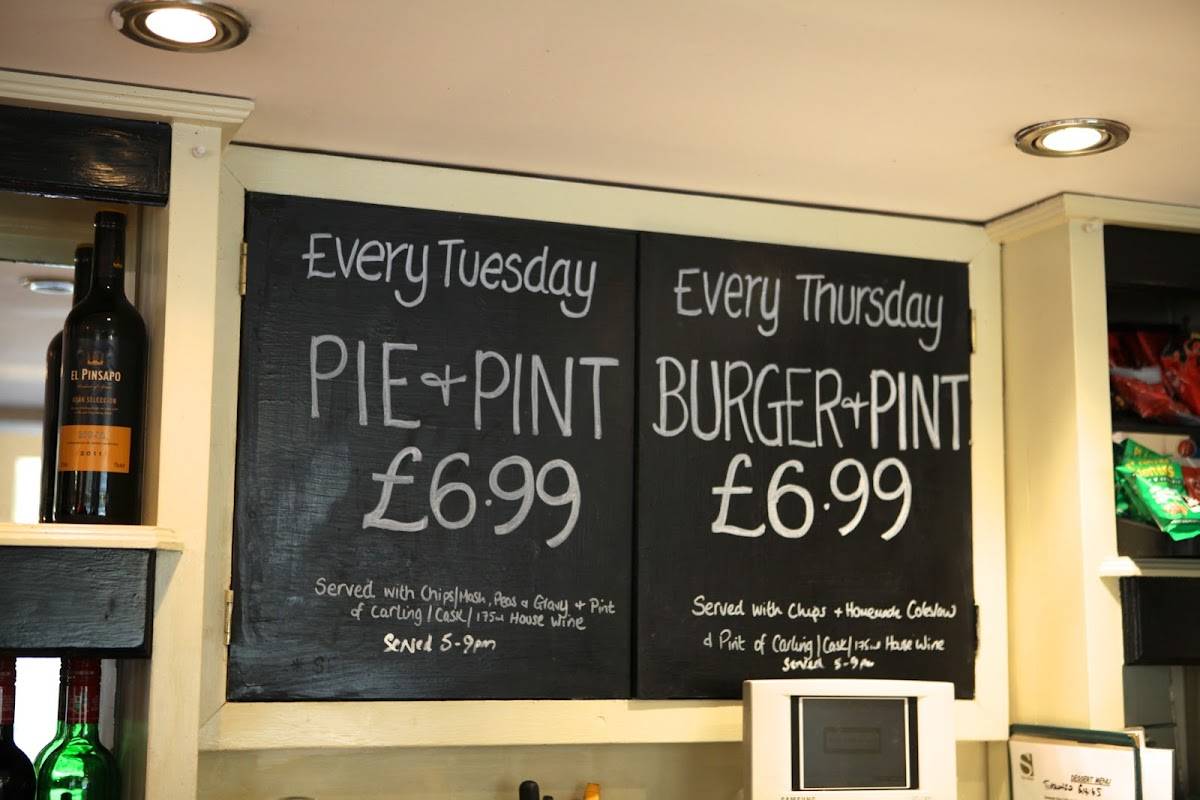 Every Tuesday
PIE + PINT
£6.99
Served with Chips/Mash, Peas & Gravy + Pint
of Carling/Cask/175ml House Wine
Served 5-9pm
Every Thursday
BURGER + PINT
£6.99
Served with Chips + Homemade Coleslaw
& Pint of Carling/Cask/175ml House Wine
Served 5-9pm
EL PINSAPO
GRAN SELECCION
2011
SAMSUNG
DESSERT MENU
Tiramisu £4.45